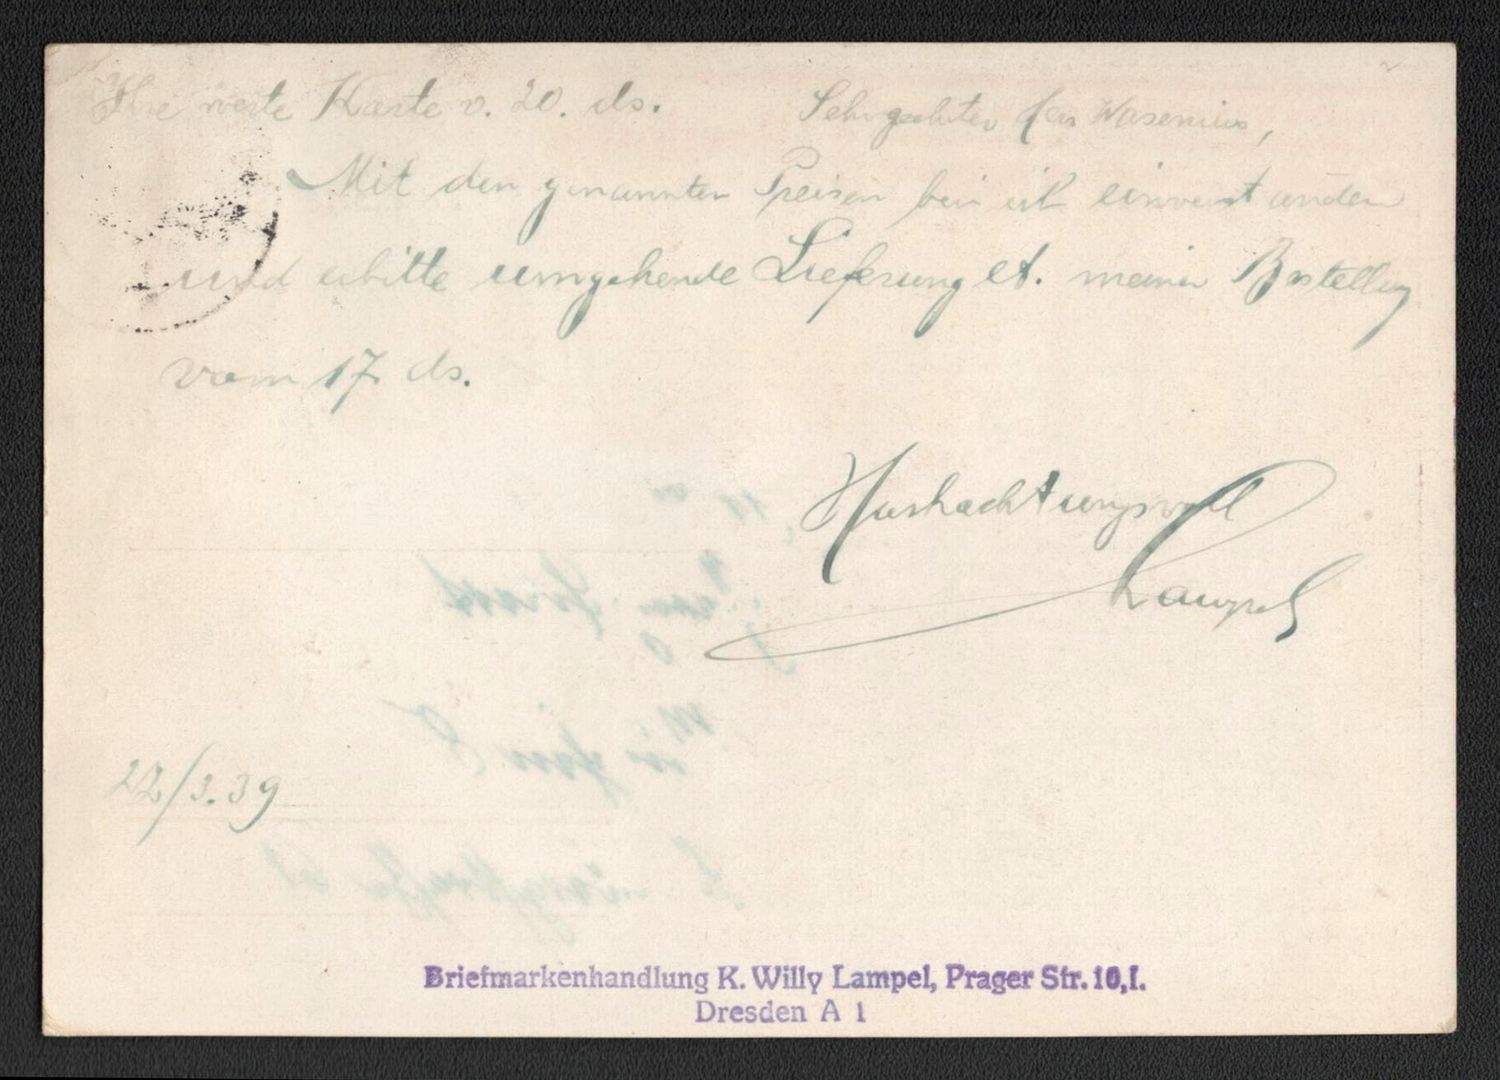 Ihre werte Karte v. 20. ds. Sehrgeehrter Herr Wasenius,
Mit den genannten Preisen bin ich einverstanden
und erbitte umgehende Lieferung lt. meiner Bestellung
vom 17 ds.
Hochachtungsvoll
Lampel
22/3.39
Briefmarkenhandlung K. Willy Lampel, Prager Str. 10,I.
Dresden A 1